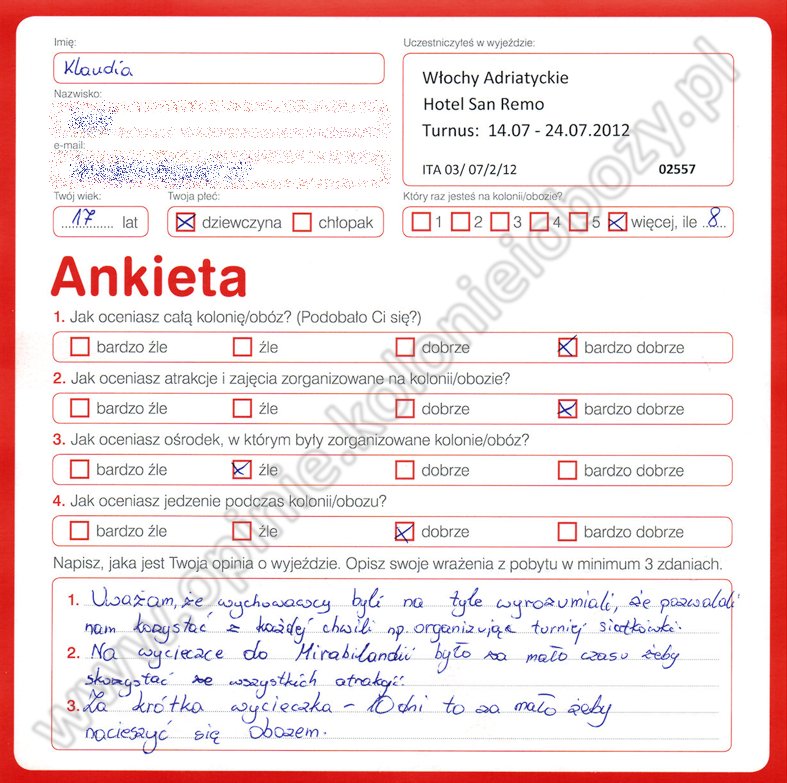 Imię:
Klaudia
Nazwisko:
e-mail:
Twój wiek:
17 lat
Twoja płeć:
dziewczyna chłopak
Uczestniczyłeś w wyjeździe:
Włochy Adriatyckie
Hotel San Remo
Turnus: 14.07 - 24.07.2012
ITA 03/ 07/2/12 02557
Który raz jesteś na kolonii/obozie?
1 2 3 4 5 więcej, ile 8
Ankieta
1. Jak oceniasz całą kolonię/obóz? (Podobało Ci się?)
bardzo źle źle dobrze bardzo dobrze
2. Jak oceniasz atrakcje i zajęcia zorganizowane na kolonii/obozie?
bardzo źle źle dobrze bardzo dobrze
3. Jak oceniasz ośrodek, w którym były zorganizowane kolonie/obóz?
bardzo źle źle dobrze bardzo dobrze
4. Jak oceniasz jedzenie podczas kolonii/obozu?
bardzo źle źle dobrze bardzo dobrze
Napisz, jaka jest Twoja opinia o wyjeździe. Opisz swoje wrażenia z pobytu w minimum 3 zdaniach.
1. Uważam, że wychowawcy byli na tyle wyrozumiali, że pozwalali
nam korzystać z każdej chwili np. organizując turniej siatkówki.
2. Na wycieczce do Mirabilandii było za mało czasu żeby
skorzystać ze wszystkich atrakcji.
3. Za krótka wycieczka – 10 dni to za mało żeby
nacieszyć się obozem.
www.opinie.kolonieiobozy.pl